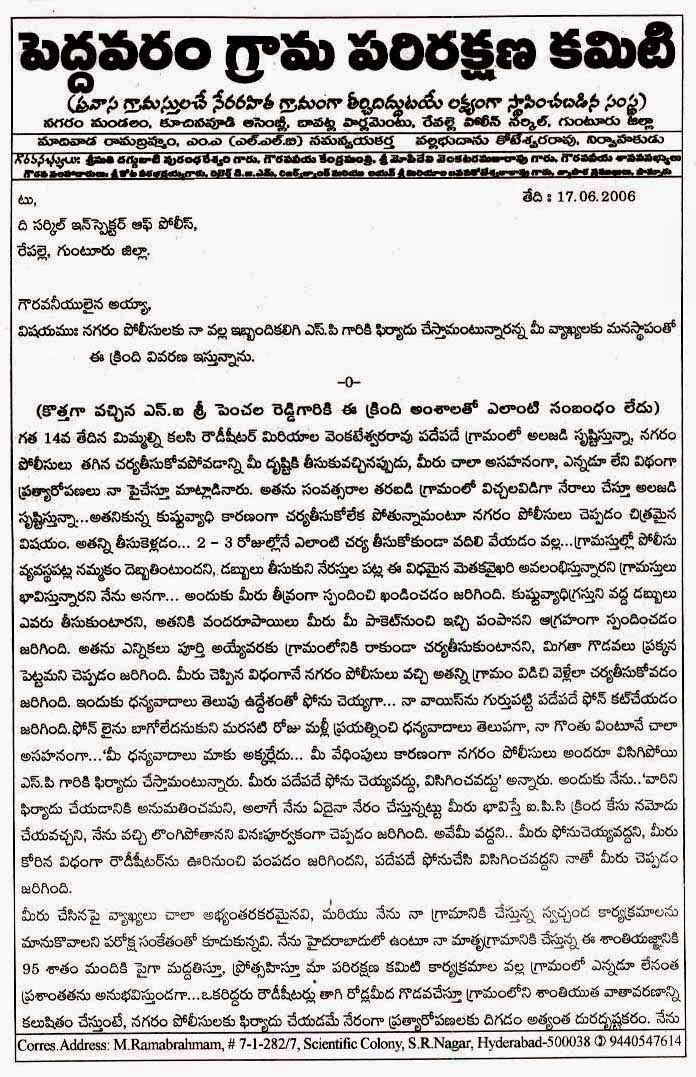 పెద్దవరం గ్రామ పరిరక్షణ కమిటి
(ప్రవాస గ్రామస్తులచే నేరరహిత గ్రామంగా తీర్చిదిద్దుటయే లక్ష్యంగా స్థాపించబడిన సంస్థ)
నగరం మండలం, కూచినపూడి అసెంబ్లీ, బాపట్ల పార్లమెంటు, రేపల్లె పోలీస్ సర్కిల్, గుంటూరు జిల్లా
మాదివాడ రామబ్రహ్మం, ఎం.ఎ (ఎల్.ఎల్.బి) సమన్వయకర్త వల్లభుదాసు కోటేశ్వరరావు, నిర్వాహకుడు
గౌరవసభ్యులు: శ్రీమతి దగ్గుబాటి పురంధరేశ్వరి గారు, గౌరవనీయ కేంద్రమంత్రి, శ్రీ మోపిదేవి వెంకటరమణారావు గారు, గౌరవనీయ శాసనసభ్యులు
టు, తేది: 17.06.2006
ది సర్కిల్ ఇన్‌స్పెక్టర్ ఆఫ్ పోలీస్,
రేపల్లె, గుంటూరు జిల్లా.
గౌరవనీయులైన అయ్యా,
విషయము: నగరం పోలీసులకు నా వల్ల ఇబ్బందికలిగి ఎస్.పి గారికి ఫిర్యాదు చేస్తామంటున్నారన్న మీ వ్యాఖ్యలకు మనస్థాపంతో
ఈ క్రింది వివరణ ఇస్తున్నాను.
-0-
(కొత్తగా వచ్చిన ఎస్.ఐ శ్రీ పెంచల రెడ్డిగారికి ఈ క్రింది అంశాలతో ఎలాంటి సంబంధం లేదు)
గత 14వ తేదిన మిమ్మల్ని కలసి రౌడీషీటర్ మిరియాల వెంకటేశ్వరరావు పదేపదే గ్రామంలో అలజడి సృష్టిస్తున్నా, నగరం
పోలీసులు తగిన చర్యతీసుకోవపోవడాన్ని మీ దృష్టికి తీసుకువచ్చినప్పుడు, మీరు చాలా అసహనంగా, ఎన్నడూ లేని విథంగా
ప్రత్యారోపణలు నా పైచేస్తూ మాట్లాడినారు. అతను సంవత్సరాల తరబడి గ్రామంలో విచ్చలవిడిగా నేరాలు చేస్తూ అలజడి
సృష్టిస్తున్నా...అతనికున్న కుష్టువ్యాధి కారణంగా చర్యతీసుకోలేక పోతున్నామంటూ నగరం పోలీసులు చెప్పడం చిత్రమైన
విషయం. అతన్ని తీసుకెళ్లడం... 2 - 3 రోజుల్లోనే ఎలాంటి చర్య తీసుకోకుండా వదిలి వేయడం వల్ల...గ్రామస్తుల్లో పోలీసు
వ్యవస్థపట్ల నమ్మకం దెబ్బతింటుందని, డబ్బులు తీసుకుని నేరస్తుల పట్ల ఈ విధమైన మెతకవైఖరి అవలంభిస్తున్నారని గ్రామస్తులు
భావిస్తున్నారని నేను అనగా... అందుకు మీరు తీవ్రంగా స్పందించి ఖండించడం జరిగింది. కుష్టువ్యాధిగ్రస్తుని వద్ద డబ్బులు
ఎవరు తీసుకుంటారని, అతనికి వందరూపాయిలు మీరు మీ పాకెట్‌నుంచి ఇచ్చి పంపానని ఆగ్రహంగా స్పందించడం
జరిగింది. అతను ఎన్నికలు పూర్తి అయ్యేవరకు గ్రామంలోనికి రాకుండా చర్యతీసుకుంటానని, మిగతా గొడవలు ప్రక్కన
పెట్టమని చెప్పడం జరిగింది. మీరు చెప్పిన విధంగానే నగరం పోలీసులు వచ్చి అతన్ని గ్రామం విడిచి వెళ్లేలా చర్యతీసుకోవడం
జరిగింది. ఇందుకు ధన్యవాదాలు తెలుపు ఉద్దేశంతో ఫోను చెయ్యగా... నా వాయిస్‌ను గుర్తుపట్టి పదేపదే ఫోన్ కట్‌చేయడం
జరిగింది.ఫోన్ లైను బాగోలేదనుకుని మరసటి రోజు మళ్లీ ప్రయత్నించి ధన్యవాదాలు తెలుపగా, నా గొంతు వింటూనే చాలా
అసహనంగా...'మీ ధన్యవాదాలు మాకు అక్కర్లేదు... మీ వేధింపులు కారణంగా నగరం పోలీసులు అందరూ విసిగిపోయి
ఎస్.పి గారికి ఫిర్యాదు చేస్తామంటున్నారు. మీరు పదేపదే ఫోను చెయ్యవద్దు, విసిగించవద్దు' అన్నారు. అందుకు నేను..'వారిని
ఫిర్యాదు చేయడానికి అనుమతించమని, అలాగే నేను ఏదైనా నేరం చేస్తున్నట్టు మీరు భావిస్తే ఐ.పి.సి క్రింద కేసు నమోదు
చేయవచ్చని, నేను వచ్చి లొంగిపోతానని వినఃపూర్వకంగా చెప్పడం జరిగింది. అవేమీ వద్దని.. మీరు ఫోనుచెయ్యవద్దని, మీరు
కోరిన విధంగా రౌడీషీటర్‌ను ఊరినుంచి పంపడం జరిగిందని, పదేపదే ఫోనుచేసి విసిగించవద్దని నాతో మీరు చెప్పడం
జరిగింది.
మీరు చేసినపై వ్యాఖ్యలు చాలా అభ్యంతరకరమైనవి, మరియు నేను నా గ్రామానికి చేస్తున్న స్వచ్ఛంద కార్యక్రమాలను
మానుకోవాలని పరోక్ష సంకేతంతో కూడుకున్నవి. నేను హైదరాబాదులో ఉంటూ నా మాతృగ్రామానికి చేస్తున్న ఈ శాంతియజ్ఞానికి
95 శాతం మందికి పైగా మద్దతిస్తూ, ప్రోత్సహిస్తూ మా పరిరక్షణ కమిటి కార్యక్రమాల వల్ల గ్రామంలో ఎన్నడూ లేనంత
ప్రశాంతతను అనుభవిస్తుండగా...ఒకరిద్దరు రౌడీషీటర్లు తాగి రోడ్లమీద గొడవచేస్తూ గ్రామంలోని శాంతియుత వాతావరణాన్ని
కలుషితం చేస్తుంటే, నగరం పోలీసులకు ఫిర్యాదు చేయడమే నేరంగా ప్రత్యారోపణలకు దిగడం అత్యంత దురదృష్టకరం. నేను
Corres.Address: M.Ramabrahmam, # 7-1-282/7, Scientific Colony, S.R.Nagar, Hyderabad-500038 ✆ 9440547614